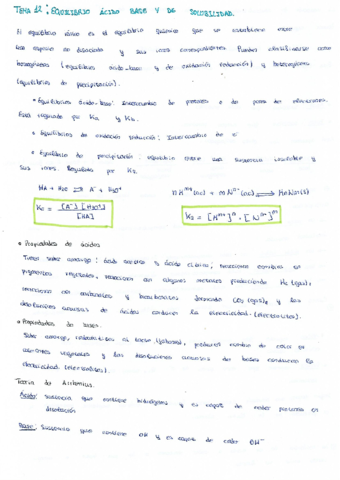 TEMA 12: EQUILIBRIO ÁCIDO BASE Y DE SOLUBILIDAD.
El equilibrio iónico es el equilibrio químico que se establece entre
una especie no disociada y sus iones correspondientes. Pueden clasificarse como
homogéneos (equilibrios ácido-base y de oxidación reducción) y heterogéneos
(equilibrios de precipitación).
• Equilibrios ácido-base: Intercambio de protones o de pares de electrones.
Está regulado por Ka y Kb.
• Equilibrios de oxidación reducción: Intercambio de e⁻
• Equilibrio de precipitación: equilibrio entre una sustancia insoluble y
sus iones. Regulado por Ks.
HA + H2O ⇌ A⁻ + H3O⁺ n M^m+ (ac) + m N^n- (ac) ⇌ MnNm(s)
Ka = [A⁻][H3O⁺] / [HA] Ks = [M^m+]^n · [N^n-]^m
• Propiedades de ácidos
pigmentos vegetales, reaccionan con algunos metales produciendo H2 (gas),
reaccionan con carbonatos y bicarbonatos formando CO2 (gas), y las
disoluciones acuosas de ácidos conducen la electricidad. (electrolitos).
• Propiedades de bases.
Sabor amargo, resbaladizos al tacto (jabones), producen cambio de color en
colorantes vegetales y las disoluciones acuosas de bases conducen la
electricidad (electrolitos).
Teoría de Arrhenius.
Ácido: sustancia que contiene hidrógeno y es capaz de ceder protones en
disolución
Base: Sustancia que contiene OH y es capaz de ceder OH⁻